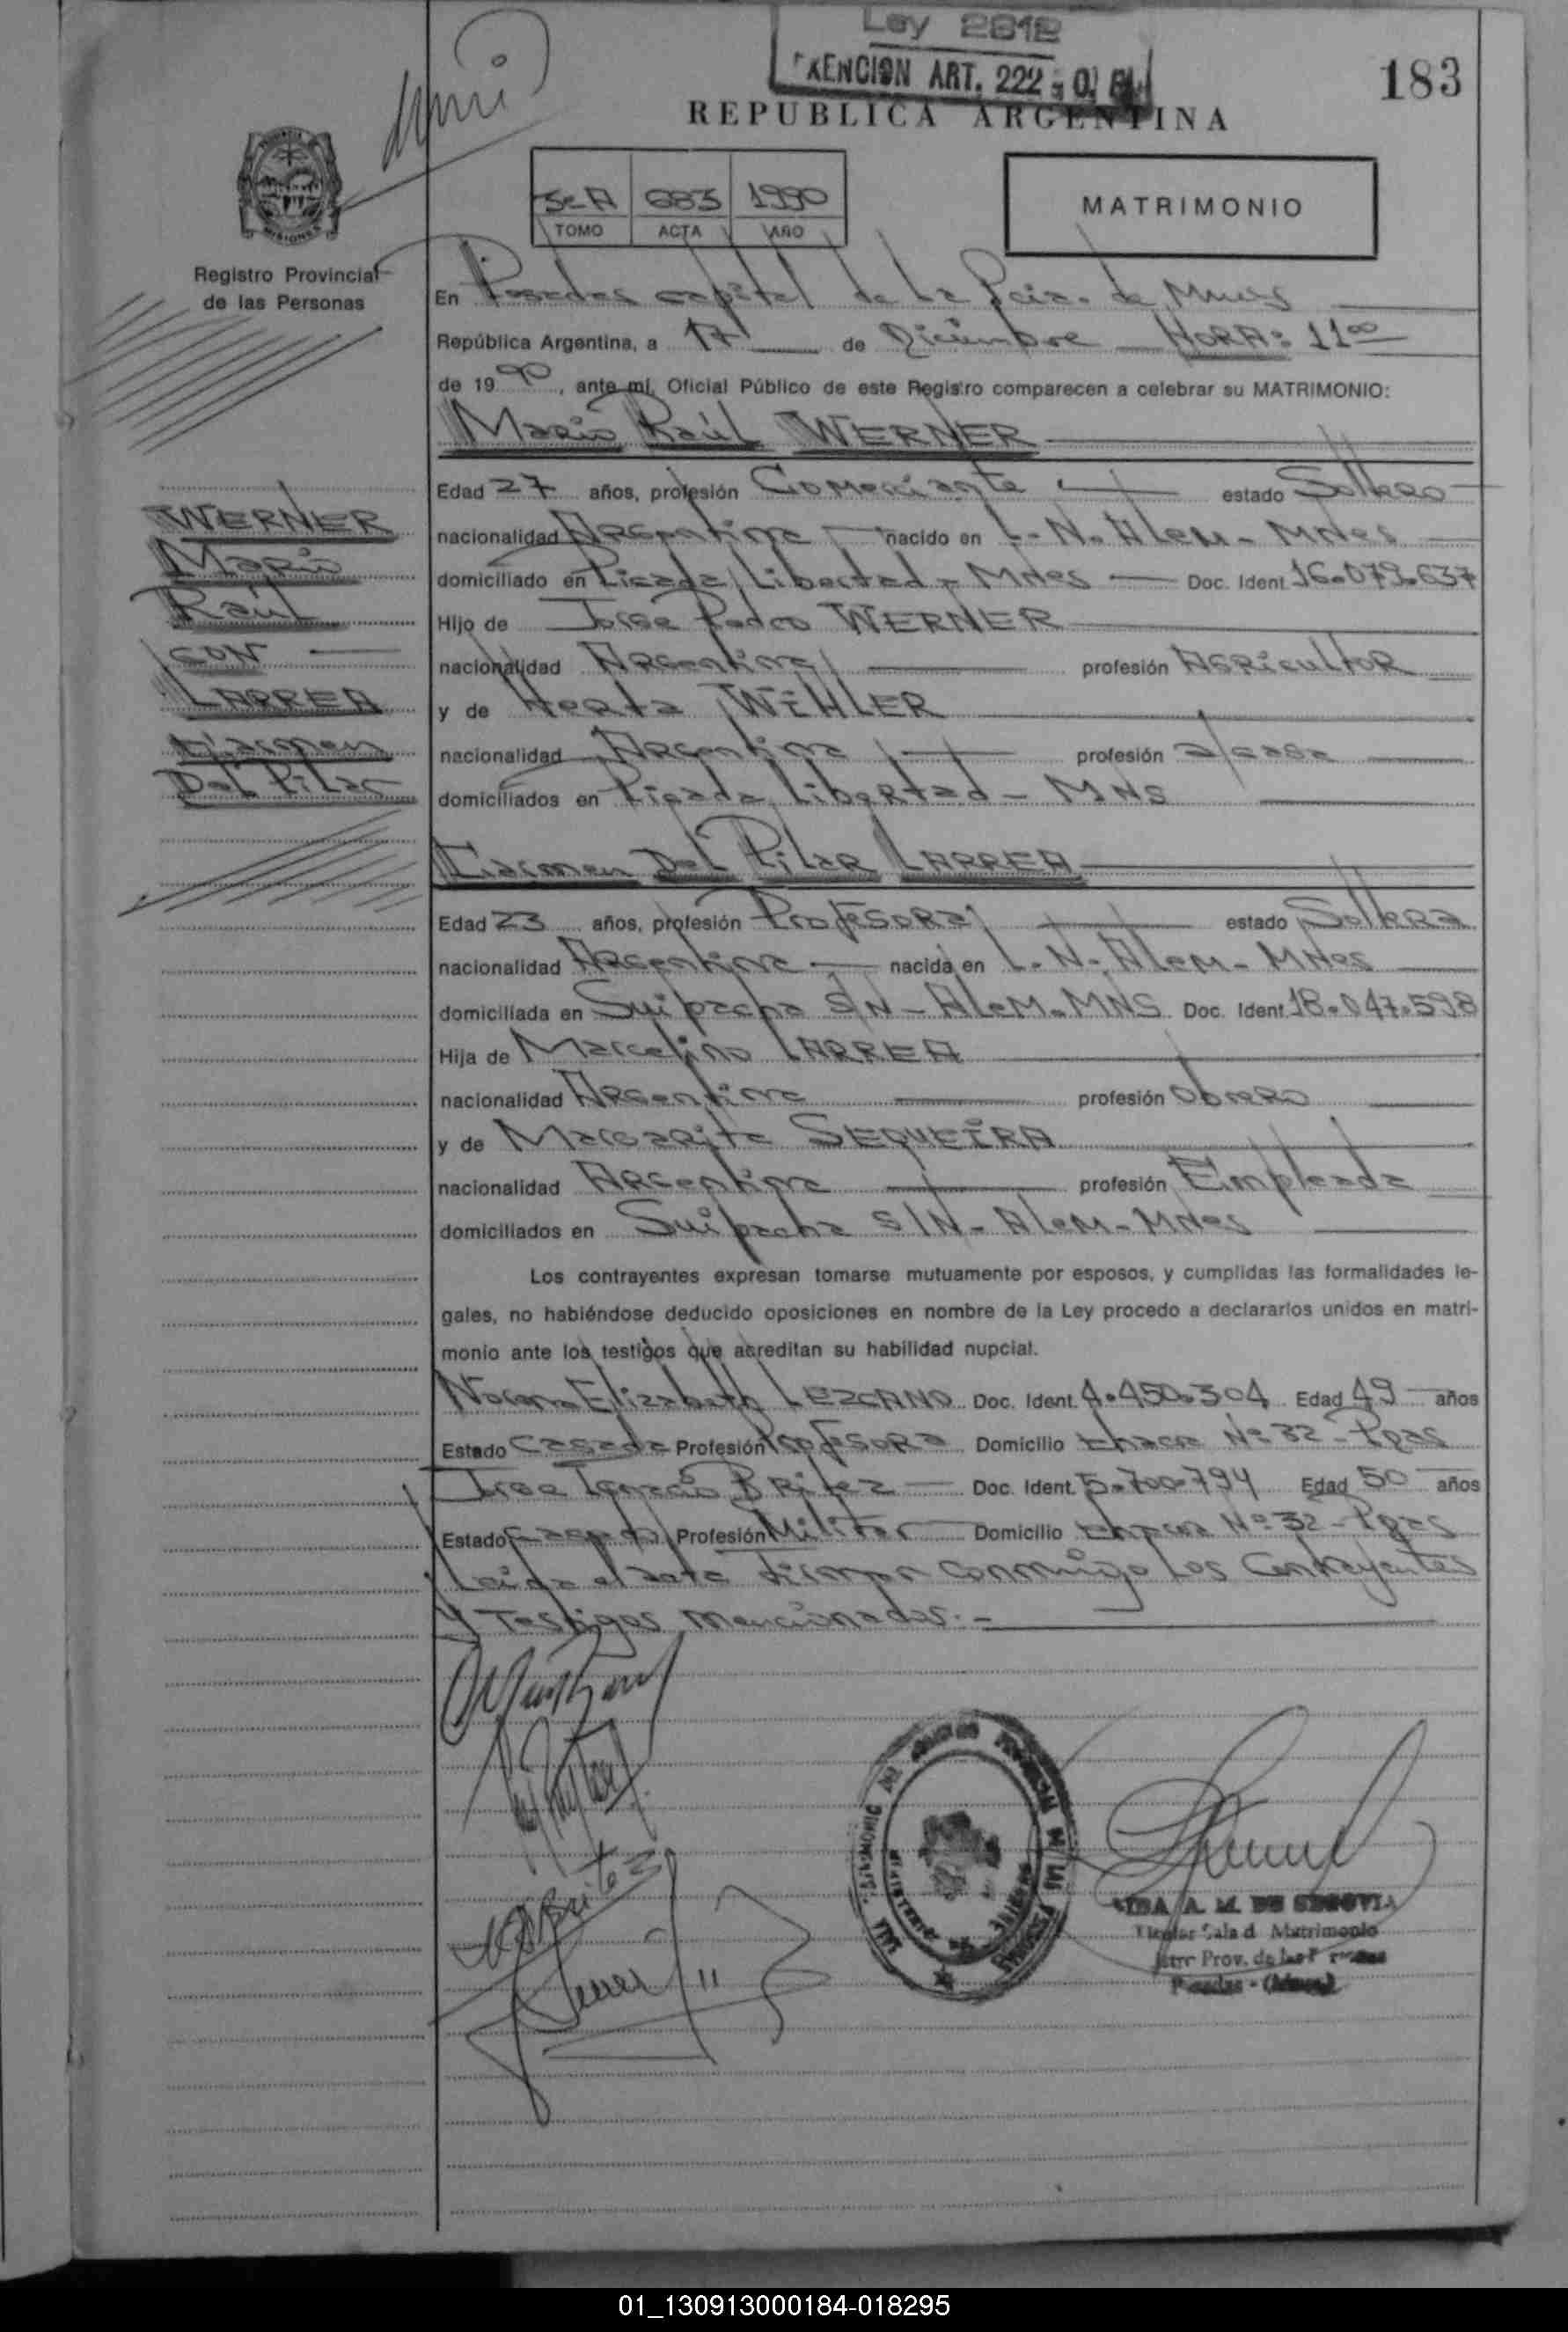 Ley 2818
EXENCION ART. 222
183
REPUBLICA ARGENTINA
3º A 683 1990
TOMO ACTA AÑO
MATRIMONIO
MISIONES
Registro Provincial
de las Personas
En Posadas capital de la Pcia. de Mnes
República Argentina, a 17 de Diciembre HORA: 11 00
de 1990, ante mi, Oficial Público de este Registro comparecen a celebrar su MATRIMONIO:
Mario Raúl WERNER
WERNER
Mario
Raúl
CON
LARREA
Carmen
Del Pilar
Edad 27 años, profesión Comerciante estado Soltero
nacionalidad Argentina nacido en L. N. Alem - MNes
domiciliado en Picada Libertad - MNes Doc. Ident. 16.079.637
Hijo de Jorge Pedro WERNER
nacionalidad Argentina profesión Agricultor
y de Herta WIHLER
nacionalidad Argentina profesión a/casa
domiciliados en Picada Libertad - MNS
Carmen Del Pilar LARREA
Edad 23 años, profesión Profesora estado Soltera
nacionalidad Argentina nacida en L. N. Alem - MNes
domiciliada en Suipacha S/N - Alem. MNS Doc. Ident. 18.047.598
Hija de Marcelino LARREA
nacionalidad Argentina profesión Obrero
y de Margarita SEQUEIRA
nacionalidad Argentina profesión Empleada
domiciliados en Suipacha S/N - Alem - MNes
Los contrayentes expresan tomarse mutuamente por esposos, y cumplidas las formalidades le-
gales, no habiéndose deducido oposiciones en nombre de la Ley procedo a declararlos unidos en matri-
monio ante los testigos que acreditan su habilidad nupcial.
Norma Elizabeth LEZCANO Doc. Ident. 4.450.304 Edad 49 años
Estado Casada Profesión Profesora Domicilio Chacra Nº 32 - Pdas
Jose Ignacio Britez Doc. Ident. 5.700.794 Edad 50 años
Estado Casado Profesión Militar Domicilio Chacra Nº 32 - Pdas
Leida el acta firman conmigo los Contrayentes
y Testigos mencionados.-
A. M. DE SEGOVIA
Titular Sala d Matrimonio
Prov. de las Personas
Posadas - (Mnes)
01_130913000184-018295